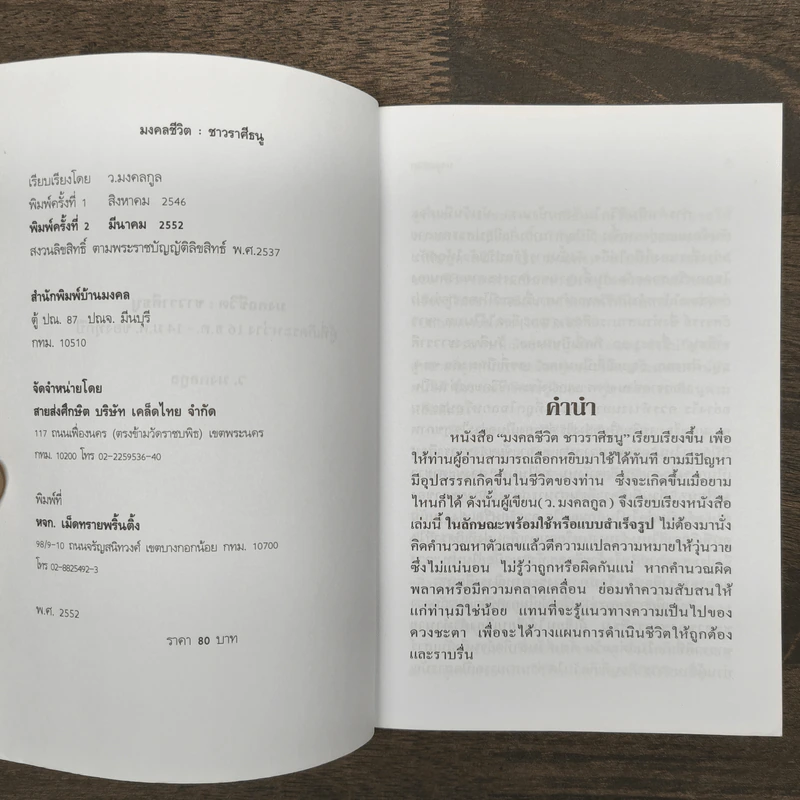 มงคลชีวิต : ชาวราศีธนู
เรียบเรียงโดย ว.มงคลกูล
พิมพ์ครั้งที่ 1 สิงหาคม 2546
พิมพ์ครั้งที่ 2 มีนาคม 2552
สงวนลิขสิทธิ์ ตามพระราชบัญญัติลิขสิทธ์ พ.ศ.2537
สำนักพิมพ์บ้านมงคล
ตู้ ปณ. 87 ปณจ. มีนบุรี
กทม. 10510
จัดจำหน่ายโดย
สายส่งศึกษิต บริษัท เคล็ดไทย จำกัด
117 ถนนเฟื่องนคร (ตรงข้ามวัดราชบพิธ) เขตพระนคร
กทม. 10200 โทร 02-2259536-40
พิมพ์ที่
หจก. เม็ดทรายพริ้นติ้ง
98/9-10 ถนนจรัญสนิทวงศ์ เขตบางกอกน้อย กทม. 10700
โทร 02-8825492-3
พ.ศ. 2552
ราคา 80 บาท
คำนำ
หนังสือ “มงคลชีวิต ชาวราศีธนู” เรียบเรียงขึ้น เพื่อ
ให้ท่านผู้อ่านสามารถเลือกหยิบมาใช้ได้ทันที ยามมีปัญหา
มีอุปสรรคเกิดขึ้นในชีวิตของท่าน ซึ่งจะเกิดขึ้นเมื่อยาม
ไหนก็ได้ ดังนั้นผู้เขียน(ว.มงคลกูล) จึงเรียบเรียงหนังสือ
เล่มนี้ ในลักษณะพร้อมใช้หรือแบบสำเร็จรูป ไม่ต้องมานั่ง
คิดคำนวณหาตัวเลขแล้วตีความแปลความหมายให้วุ่นวาย
ซึ่งไม่แน่นอน ไม่รู้ว่าถูกหรือผิดกันแน่ หากคำนวณผิด
พลาดหรือมีความคลาดเคลื่อน ย่อมทำความสับสนให้
แก่ท่านมิใช่น้อย แทนที่จะรู้แนวทางความเป็นไปของ
ดวงชะตา เพื่อจะได้วางแผนการดำเนินชีวิตให้ถูกต้อง
และราบรื่น